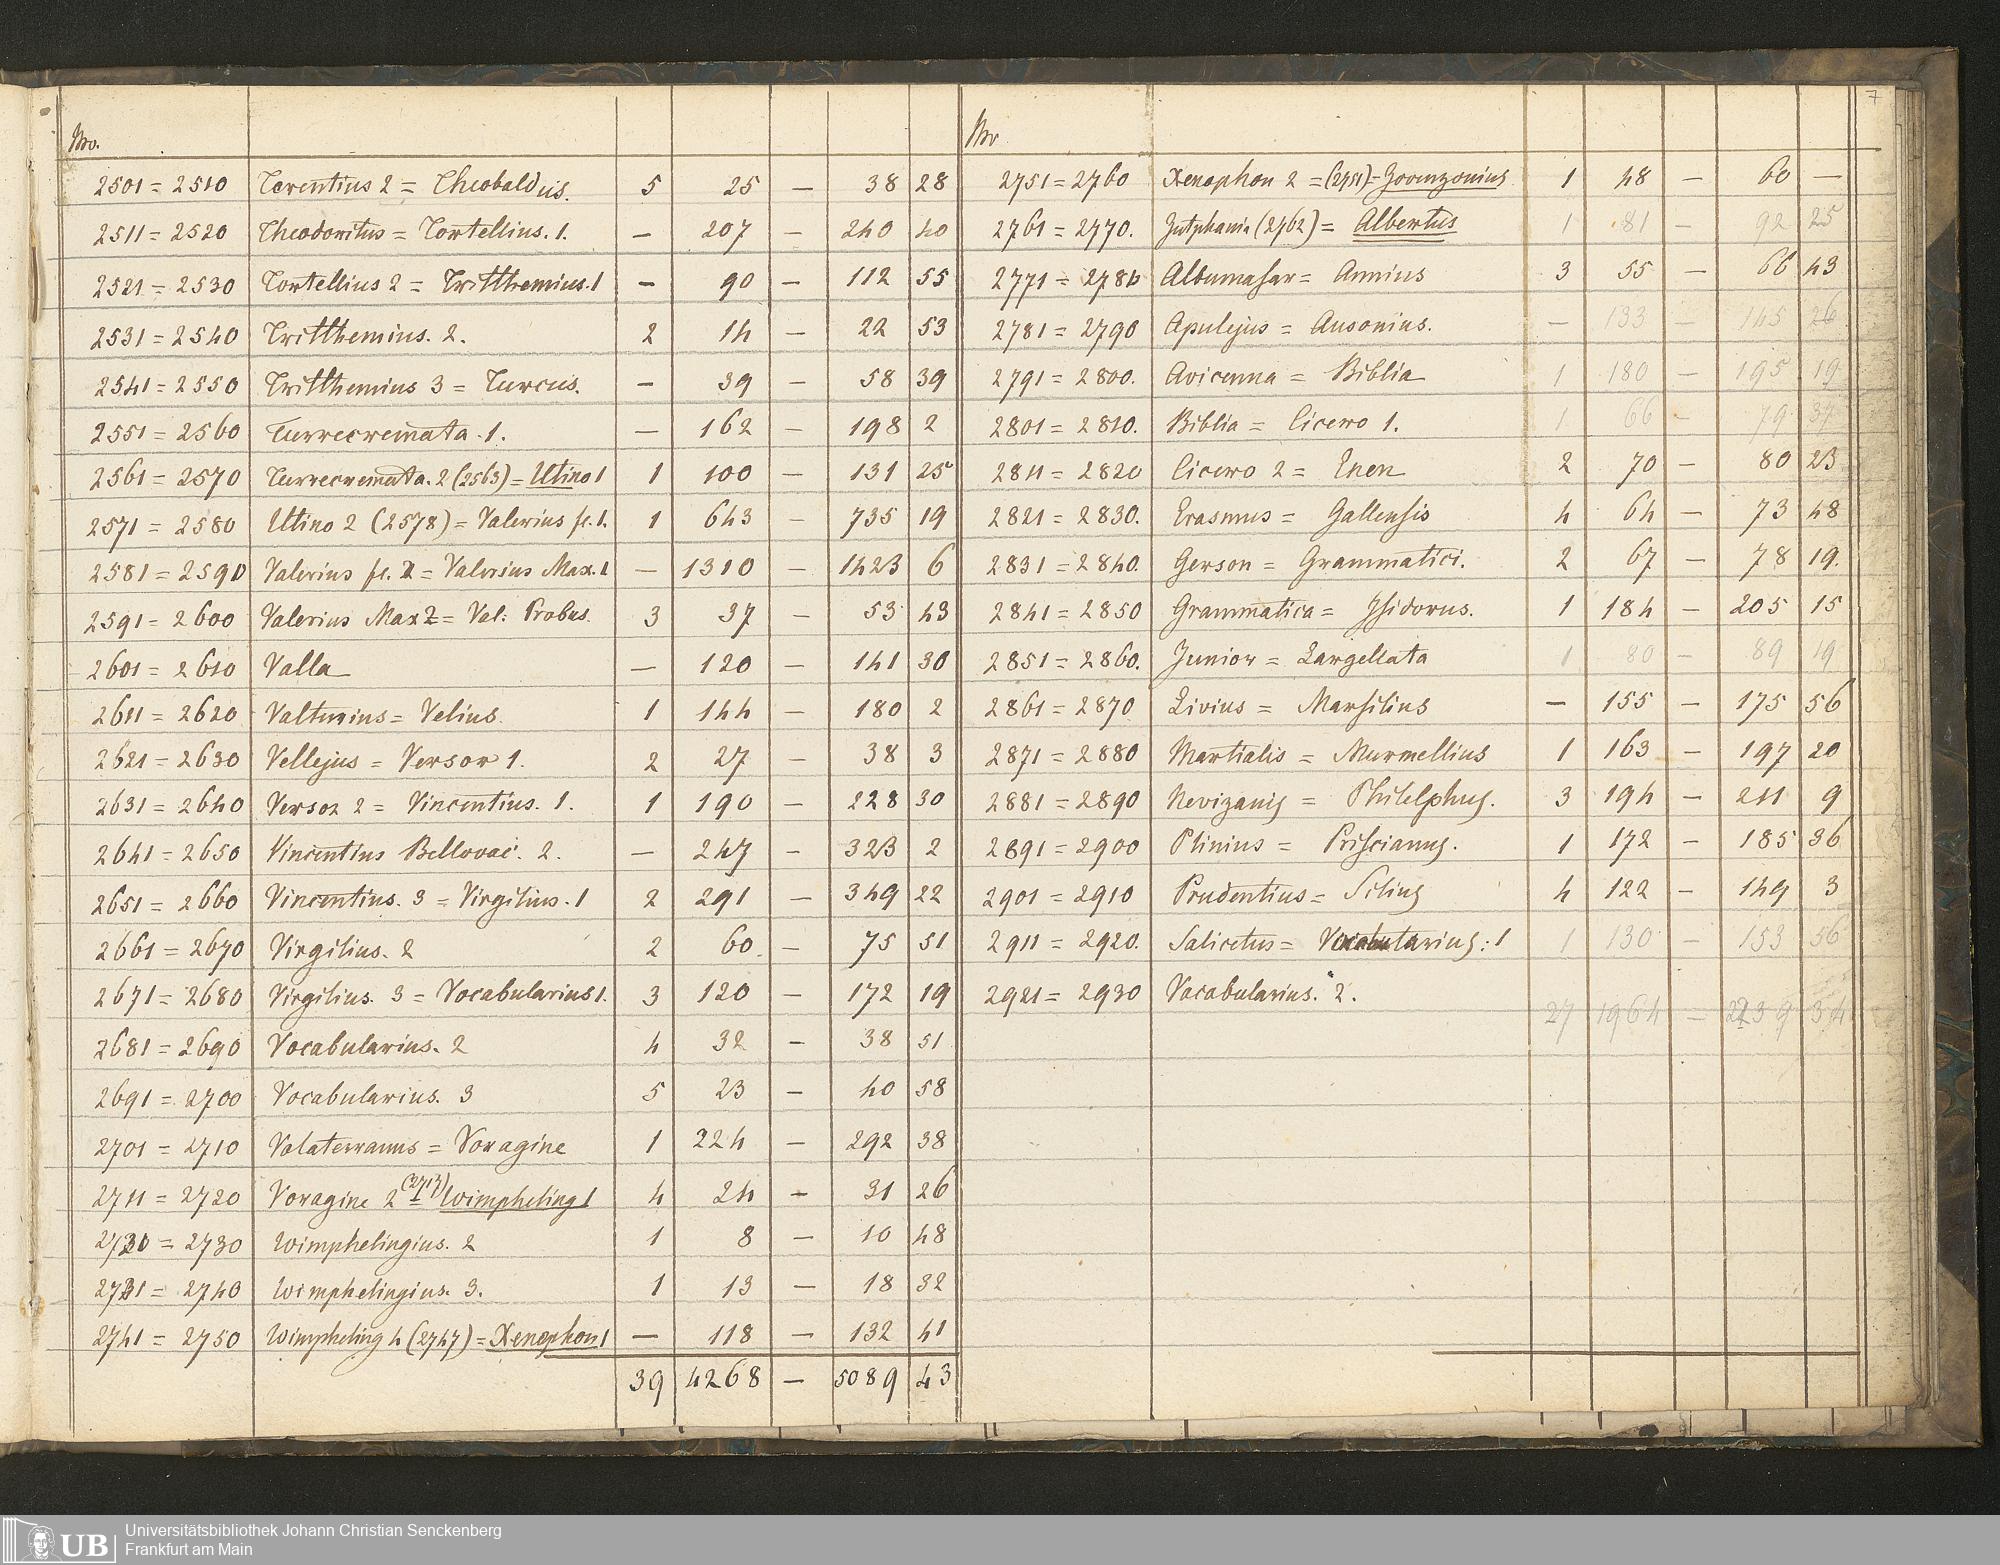 7
Nro.
2501 = 2510 Terentius 2 = Theobaldus. 5 25 — 38 28
2511 = 2520 Theodoritus = Tortellius. 1. — 207 — 240 40
2521 = 2530 Tortellius 2 = Tritthemius. 1 — 90 — 112 55
2531 = 2540 Tritthemius. 2. 2 14 — 22 53
2541 = 2550 Tritthemius 3 = Turcus. — 39 — 58 39
2551 = 2560 Turrecremata. 1. — 162 — 198 2
2561 = 2570 Turrecremata. 2 (2563) = Utino 1 1 100 — 131 25
2571 = 2580 Utino 2 (2578) = Valerius fl. 1. 1 643 — 735 19
2581 = 2590 Valerius fl. 2 = Valerius Max. 1 — 1310 — 1423 6
2591 = 2600 Valerius Max 2 = Val: Probus. 3 37 — 53 43
2601 = 2610 Valla — 120 — 141 30
2611 = 2620 Valturius = Velius. 1 144 — 180 2
2621 = 2630 Vellejus = Versor 1. 2 27 — 38 3
2631 = 2640 Versor 2 = Vincentius. 1. 1 190 — 228 30
2641 = 2650 Vincentius Bellovac. 2. — 247 — 323 2
2651 = 2660 Vincentius. 3 = Virgilius. 1 2 291 — 349 22
2661 = 2670 Virgilius. 2 2 60. — 75 51
2671 = 2680 Virgilius. 3 = Vocabularius 1. 3 120 — 172 19
2681 = 2690 Vocabularius. 2 4 32 — 38 51
2691 = 2700 Vocabularius. 3 5 23 — 40 58
2701 = 2710 Volaterranus = Voragine 1 224 — 292 38
2711 = 2720 Voragine 2 (2717) = Wimpheling 1 4 24 — 31 26
= 2730 Wimphelingius. 2 1 8 — 10 48
2731 = 2740 Wimphelingius. 3. 1 13 — 18 32
2741 = 2750 Wimpheling 4 (2747) = Xenophon 1 — 118 — 132 41
39 4268 — 5089 43
Nro
2751 = 2760 Xenophon 2 = (2751) = 1 48 — 60 —
2761 = 2770. Zutphania (2762) = Albertus 1 81 — 92 25
2771 = 2780 Albumasar = Annius 3 55 — 66 43
2781 = 2790 Apulejus = Ausonius. — 133 — 145 26
2791 = 2800. Avicenna = Biblia 1 180 — 195 19
2801 = 2810. Biblia = Cicero 1. 1 66 — 79 34
2811 = 2820 Cicero 2 = Enen 2 70 — 80 23
2821 = 2830. Erasmus = Gallensis 4 64 — 73 48
2831 = 2840. Gerson = Grammatici. 2 67 — 78 19.
2841 = 2850 Grammatica = Isidorus. 1 184 — 205 15
2851 = 2860. Junior = Largellata 1 80 — 89 19
2861 = 2870. Livius = Marsilius — 155 — 175 56
2871 = 2880 Martialis = Murmellius 1 163 — 197 20
2881 = 2890 Nevizanus = Philelphus. 3 194 — 211 9
2891 = 2900 Plinius = Priscianus. 1 172 — 185 36
2901 = 2910 Prudentius = Silius 4 122 — 149 3
2911 = 2920. Salicetus = Vocabularius: 1 1 130 — 153 56
2921 = 2930 Vocabularius. 2.
27 1964 — 2239 34
UB Universitätsbibliothek Johann Christian Senckenberg
Frankfurt am Main